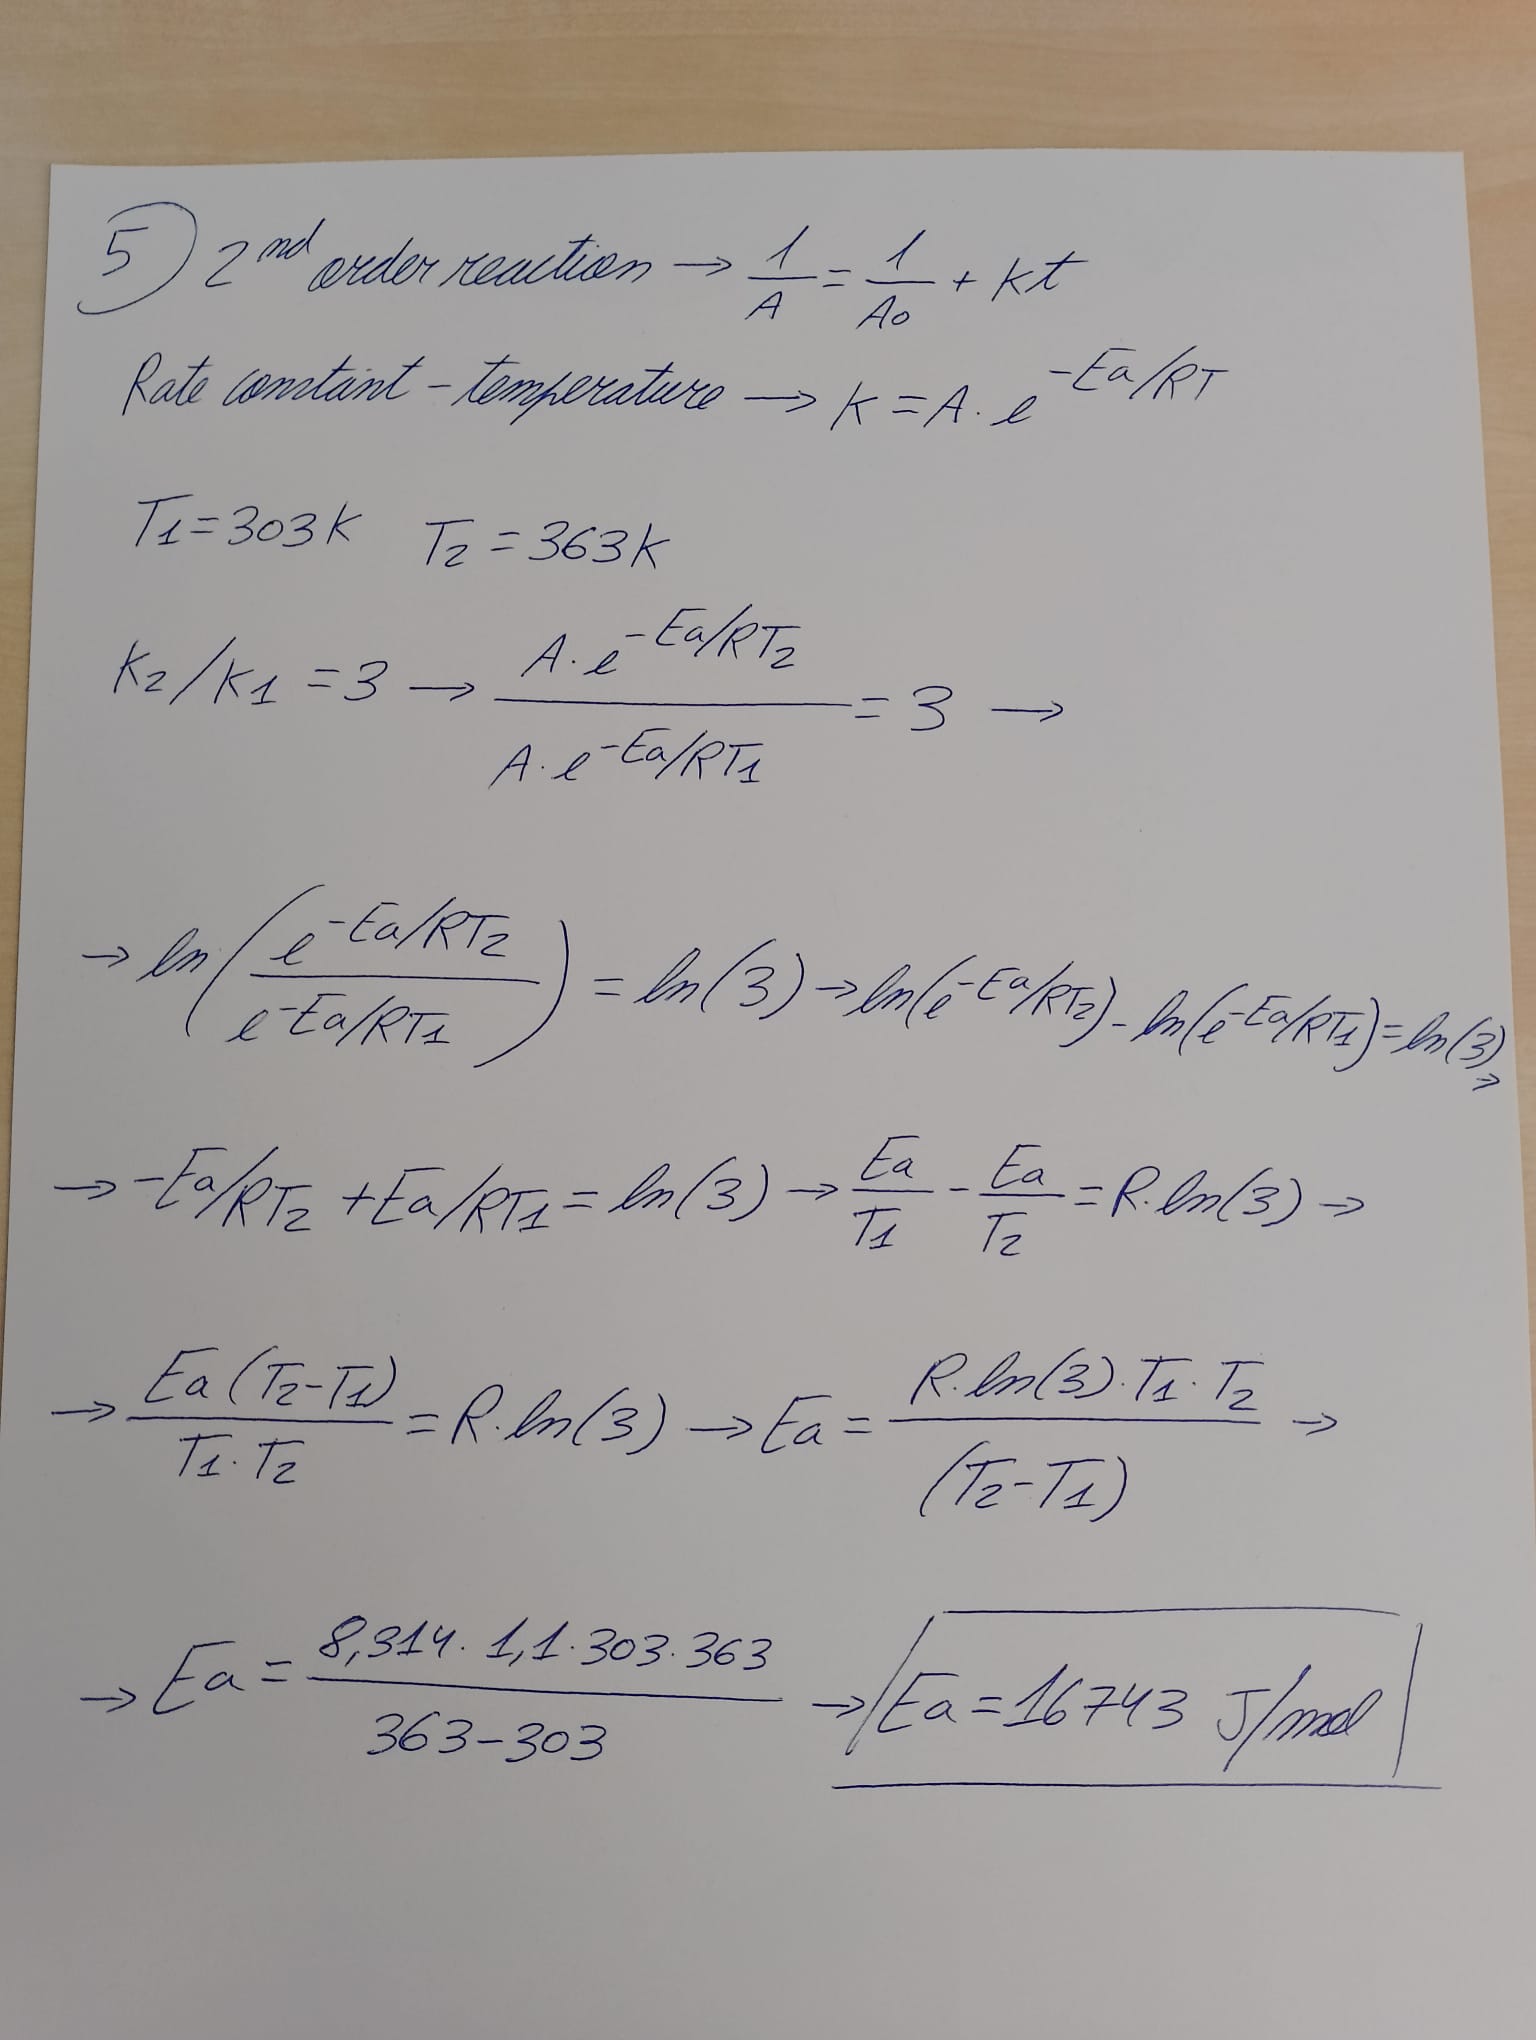 5) 2nd order reaction → 1/A = 1/A0 + Kt
Rate constant - temperature → K = A · e^-Ea/RT
T1 = 303K T2 = 363K
K2/K1 = 3 → A · e^-Ea/RT2 / A · e^-Ea/RT1 = 3 →
→ ln(e^-Ea/RT2 / e^-Ea/RT1) = ln(3) → ln(e^-Ea/RT2) - ln(e^-Ea/RT1) = ln(3) →
→ -Ea/RT2 + Ea/RT1 = ln(3) → Ea/T1 - Ea/T2 = R · ln(3) →
→ Ea(T2-T1) / T1 · T2 = R · ln(3) → Ea = R · ln(3) · T1 · T2 / (T2-T1) →
→ Ea = 8,314 · 1,1 · 303 · 363 / 363-303 → Ea = 16743 J/mol